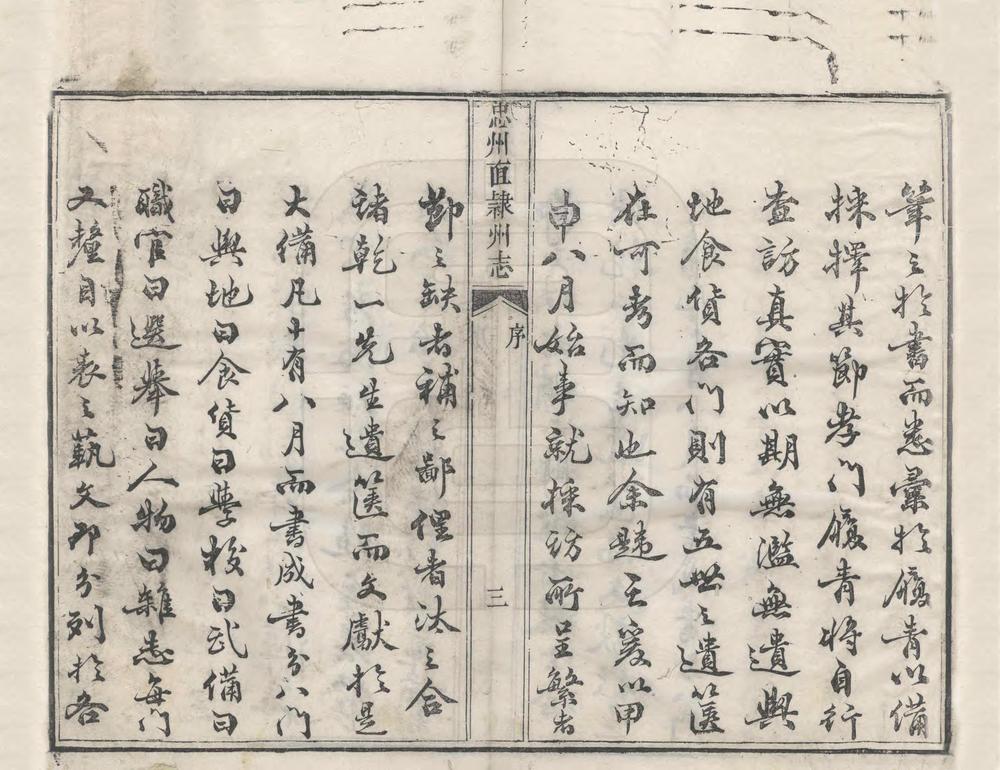 筆之於書而悉彙於廨青以備
採擇其節孝門廨青將自行
查訪真實以期無濫無遺輿
地食貨各門則有五世之遺箧
在可考而知也余韙之爰以甲
申八月始事就採訪所呈繁者
忠州直隸州志
序
三
節之缺者補之鄙俚者汰之合
諸乾一先生遺箧而文獻於是
大備凡十有八月而書成書分八門
曰輿地曰食貨曰學校曰武備曰
職官曰選舉曰人物曰雜志每門
又釐目以表之藝文即分列於各